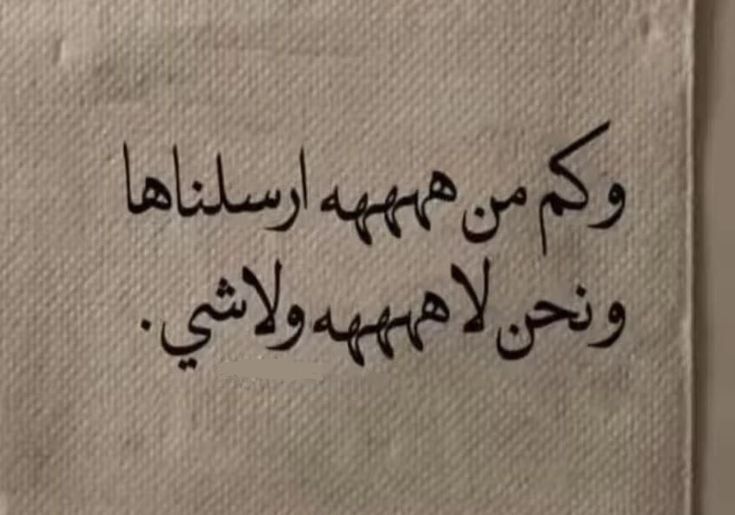 وكم من هههههه ارسلناها
ونحن لا هههههه ولاشي.